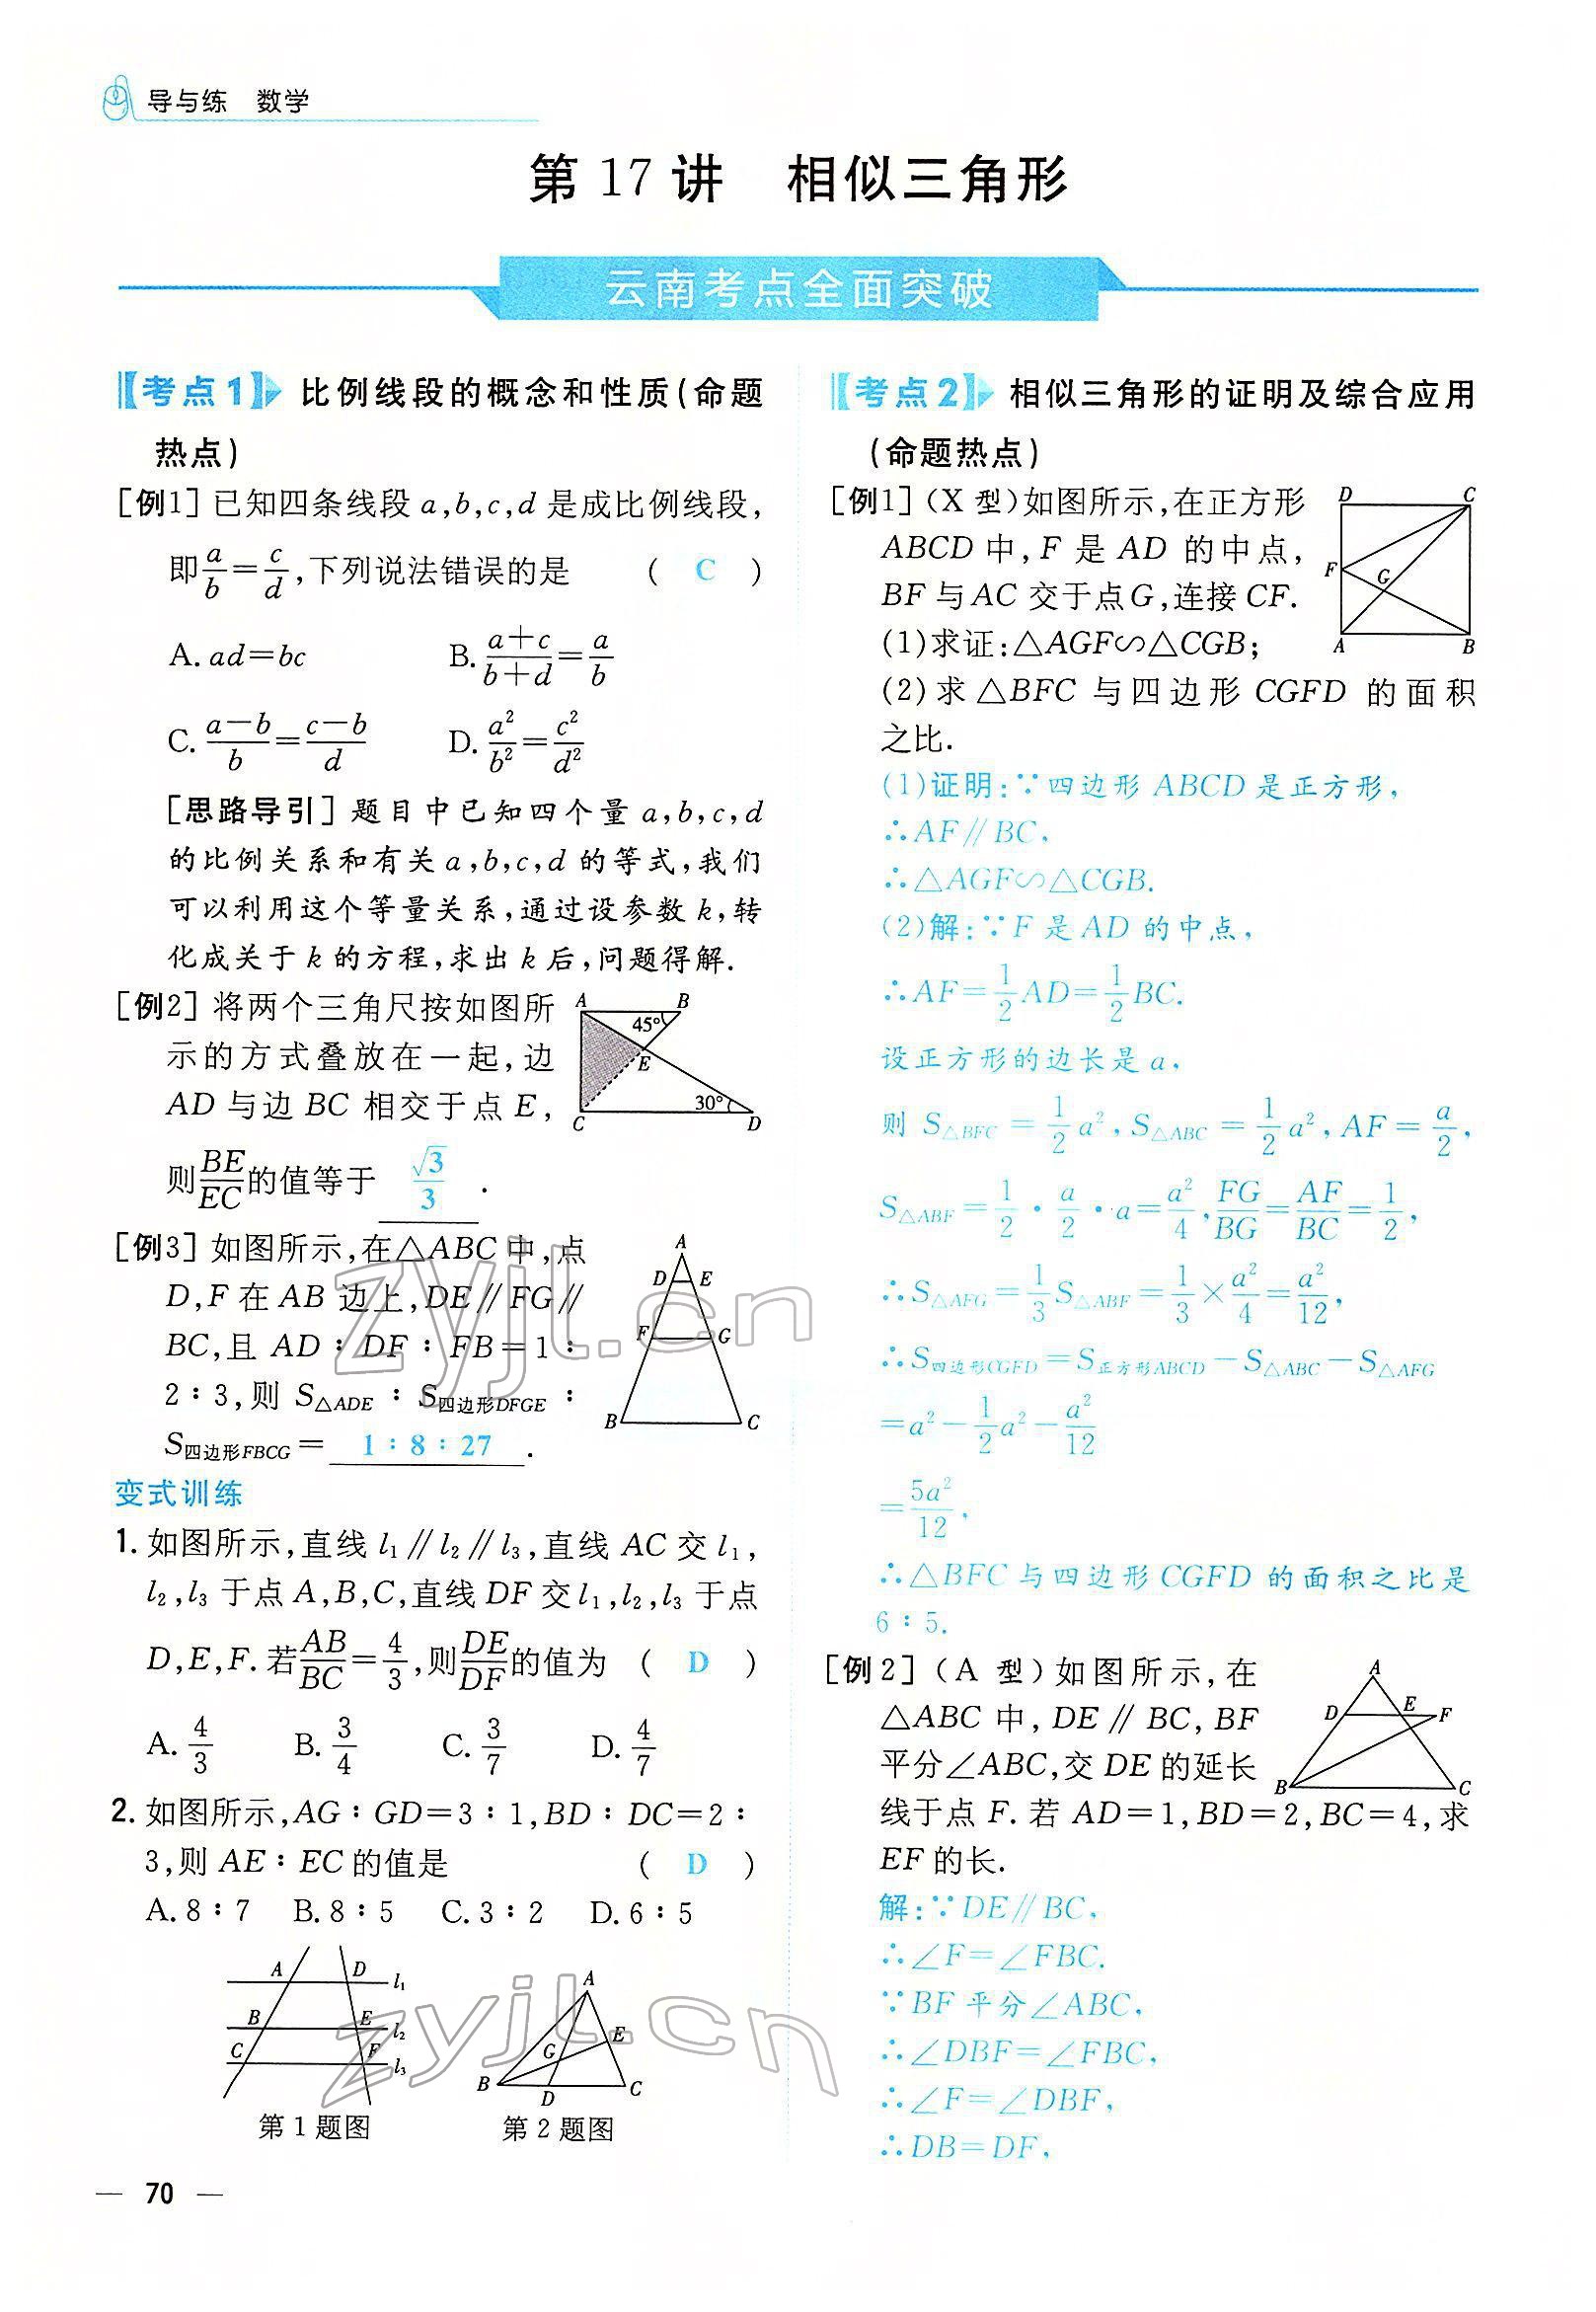 导与练 数学
第 17 讲 相似三角形
云南考点全面突破
【考点1】 比例线段的概念和性质(命题
热点)
[例1] 已知四条线段 a,b,c,d 是成比例线段,
即a/b=c/d,下列说法错误的是 ( C )
A. ad=bc B. (a+c)/(b+d)=a/b
C. (a-b)/b=(c-b)/d D. a²/b²=c²/d²
[思路导引] 题目中已知四个量 a,b,c,d
的比例关系和有关 a,b,c,d 的等式,我们
可以利用这个等量关系,通过设参数 k,转
化成关于 k 的方程,求出 k 后,问题得解.
[例2] 将两个三角尺按如图所
示的方式叠放在一起,边
AD 与边 BC 相交于点 E,
则BE/EC的值等于 √3/3 .
A B
45°
E
30°
C D
[例3] 如图所示,在△ABC 中,点
D,F 在 AB 边上,DE∥FG∥
BC,且 AD∶DF∶FB=1∶
2∶3,则 S△ADE∶S四边形DFGE∶
S四边形FBCG= 1∶8∶27 .
A
D E
F G
B C
变式训练
1. 如图所示,直线 l₁∥l₂∥l₃,直线 AC 交 l₁,
l₂,l₃ 于点 A,B,C,直线 DF 交 l₁,l₂,l₃ 于点
D,E,F. 若AB/BC=4/3,则DE/DF的值为 ( D )
A. 4/3 B. 3/4 C. 3/7 D. 4/7
2. 如图所示,AG∶GD=3∶1,BD∶DC=2∶
3,则 AE∶EC 的值是 ( D )
A. 8∶7 B. 8∶5 C. 3∶2 D. 6∶5
A D l₁
B E l₂
C F l₃
第 1 题图
A
E
G
B D C
第 2 题图
— 70 —
【考点2】 相似三角形的证明及综合应用
(命题热点)
[例1] (X 型)如图所示,在正方形
ABCD 中,F 是 AD 的中点,
BF 与 AC 交于点G,连接 CF.
(1)求证:△AGF∽△CGB;
(2)求 △BFC 与四边形 CGFD 的面积
之比.
D C
F G
A B
(1)证明:∵四边形 ABCD 是正方形,
∴AF∥BC,
∴△AGF∽△CGB.
(2)解:∵F 是 AD 的中点,
∴AF=1/2AD=1/2BC.
设正方形的边长是 a,
则 S△BFC=1/2a²,S△ABC=1/2a²,AF=a/2,
S△ABF=1/2·a/2·a=a²/4,FG/BG=AF/BC=1/2,
∴S△AFG=1/3S△ABF=1/3×a²/4=a²/12,
∴S四边形CGFD=S正方形ABCD-S△ABC-S△AFG
=a²-1/2a²-a²/12
=5a²/12,
∴△BFC 与四边形 CGFD 的面积之比是
6∶5.
[例2] (A 型)如图所示,在
△ABC 中,DE∥BC,BF
平分∠ABC,交 DE 的延长
线于点 F. 若 AD=1,BD=2,BC=4,求
EF 的长.
A
D E F
B C
解:∵DE∥BC,
∴∠F=∠FBC.
∵BF 平分∠ABC,
∴∠DBF=∠FBC,
∴∠F=∠DBF,
∴DB=DF,
zyjl.cn
zyjl.cn